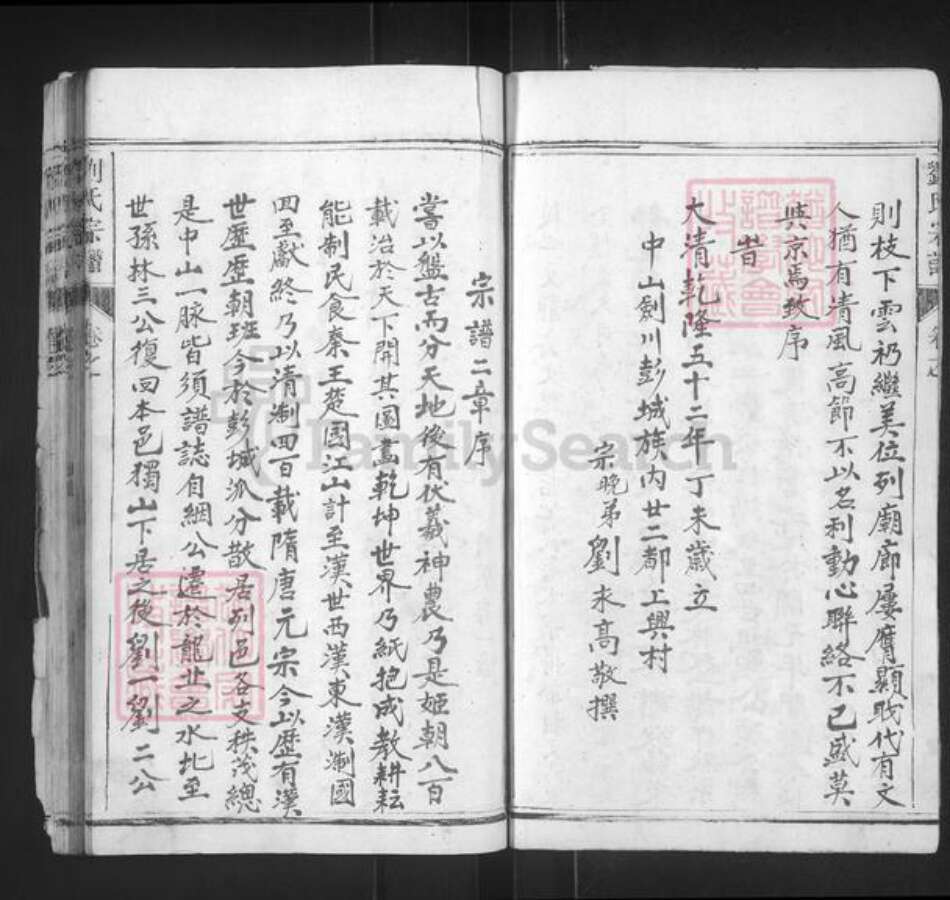 則枝下雲礽繼美位列廟廊屢膺顯耿代有文
人猶有清風高節不以名利動心聯絡不已盛莫
與京焉致序
昔
大清乾隆五十二年丁未歲立
中山劍川彭城族內廿二都上興村
宗晚弟劉末高敬撰
宗譜二章序
嘗以盤古而分天地後有伏羲神農乃是姬朝八百
載治於天下開其國畫乾坤世界乃紙抱成教耕耘
能制民食秦王楚國江山計至漢世西漢東漢制國
四至獻終乃以清制四百載隋唐元宗今以歷有漢
世歷歷朝班今於彭城派分散居列邑各支秩茂總
是中山一脉皆須譜誌自綱公遷於龍丘之水北至
世孫林三公復回本邑獨山下居之後劉一劉二公
劉氏宗譜
FamilySearch